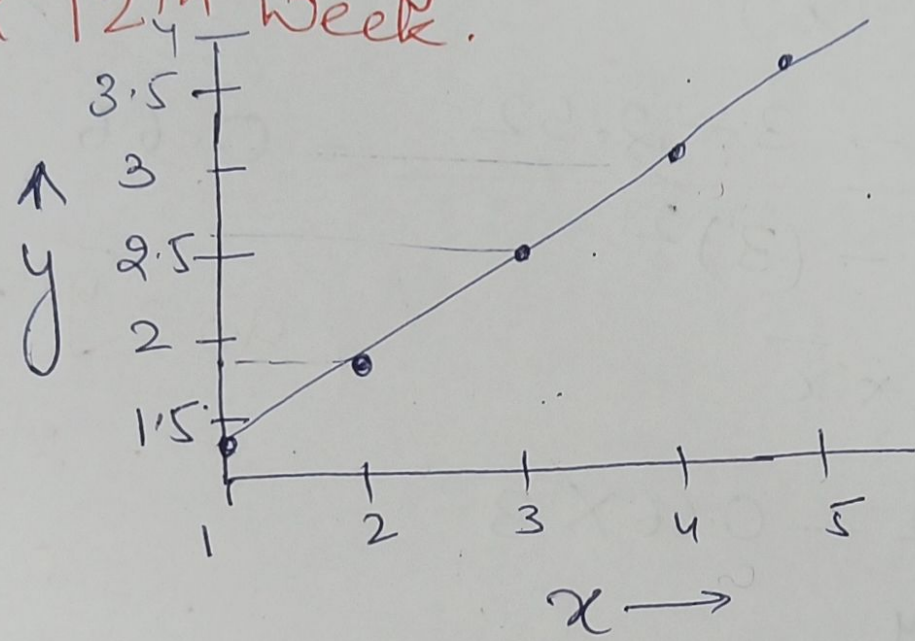 12th Week.
4
3.5
3
y
2.5
2
1.5
1 2 3 4 5
x